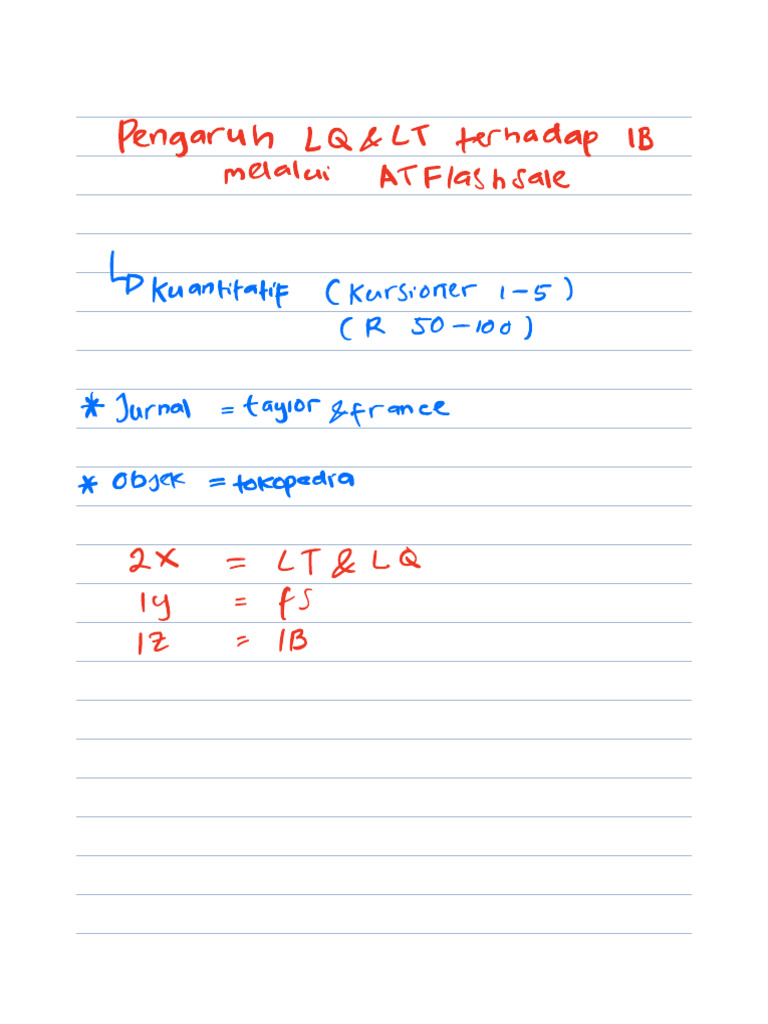 Pengaruh LQ & LT terhadap IB
melalui ATFlashsale
Kuantitatif (Kursioner 1-5)
(R 50-100)
* Jurnal = taylor & france
* Objek = tokopedia
2X = LT & LQ
1y = fs
1Z = IB